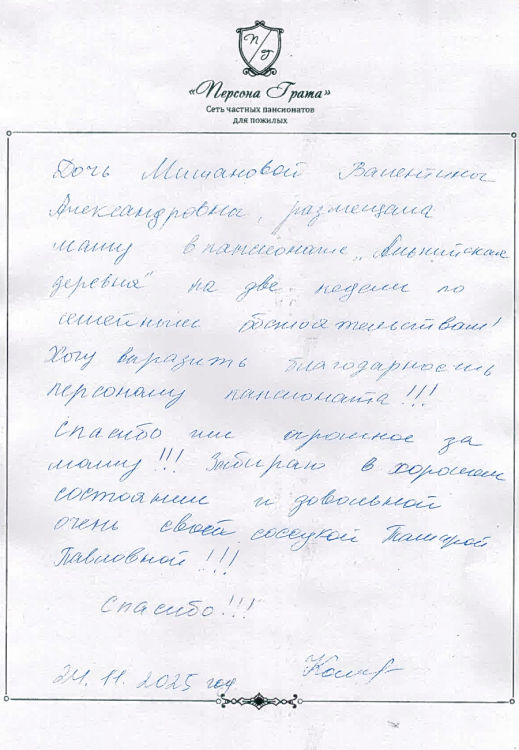 П Г
«Персона Грата»
Сеть частных пансионатов
для пожилых
Дочь Мишановой Валентины
Александровны, размещала
маму в пансионате „Альпийская
деревня" на две недели по
семейным обстоятельствам!
Хочу выразить благодарность
персоналу пансионата!!!
Спасибо им огромное за
маму!!! Забираю в хорошем
состоянии и довольной
очень своей соседкой Тамарой
Павловной!!!
Спасибо!!!
24.11.2025 год